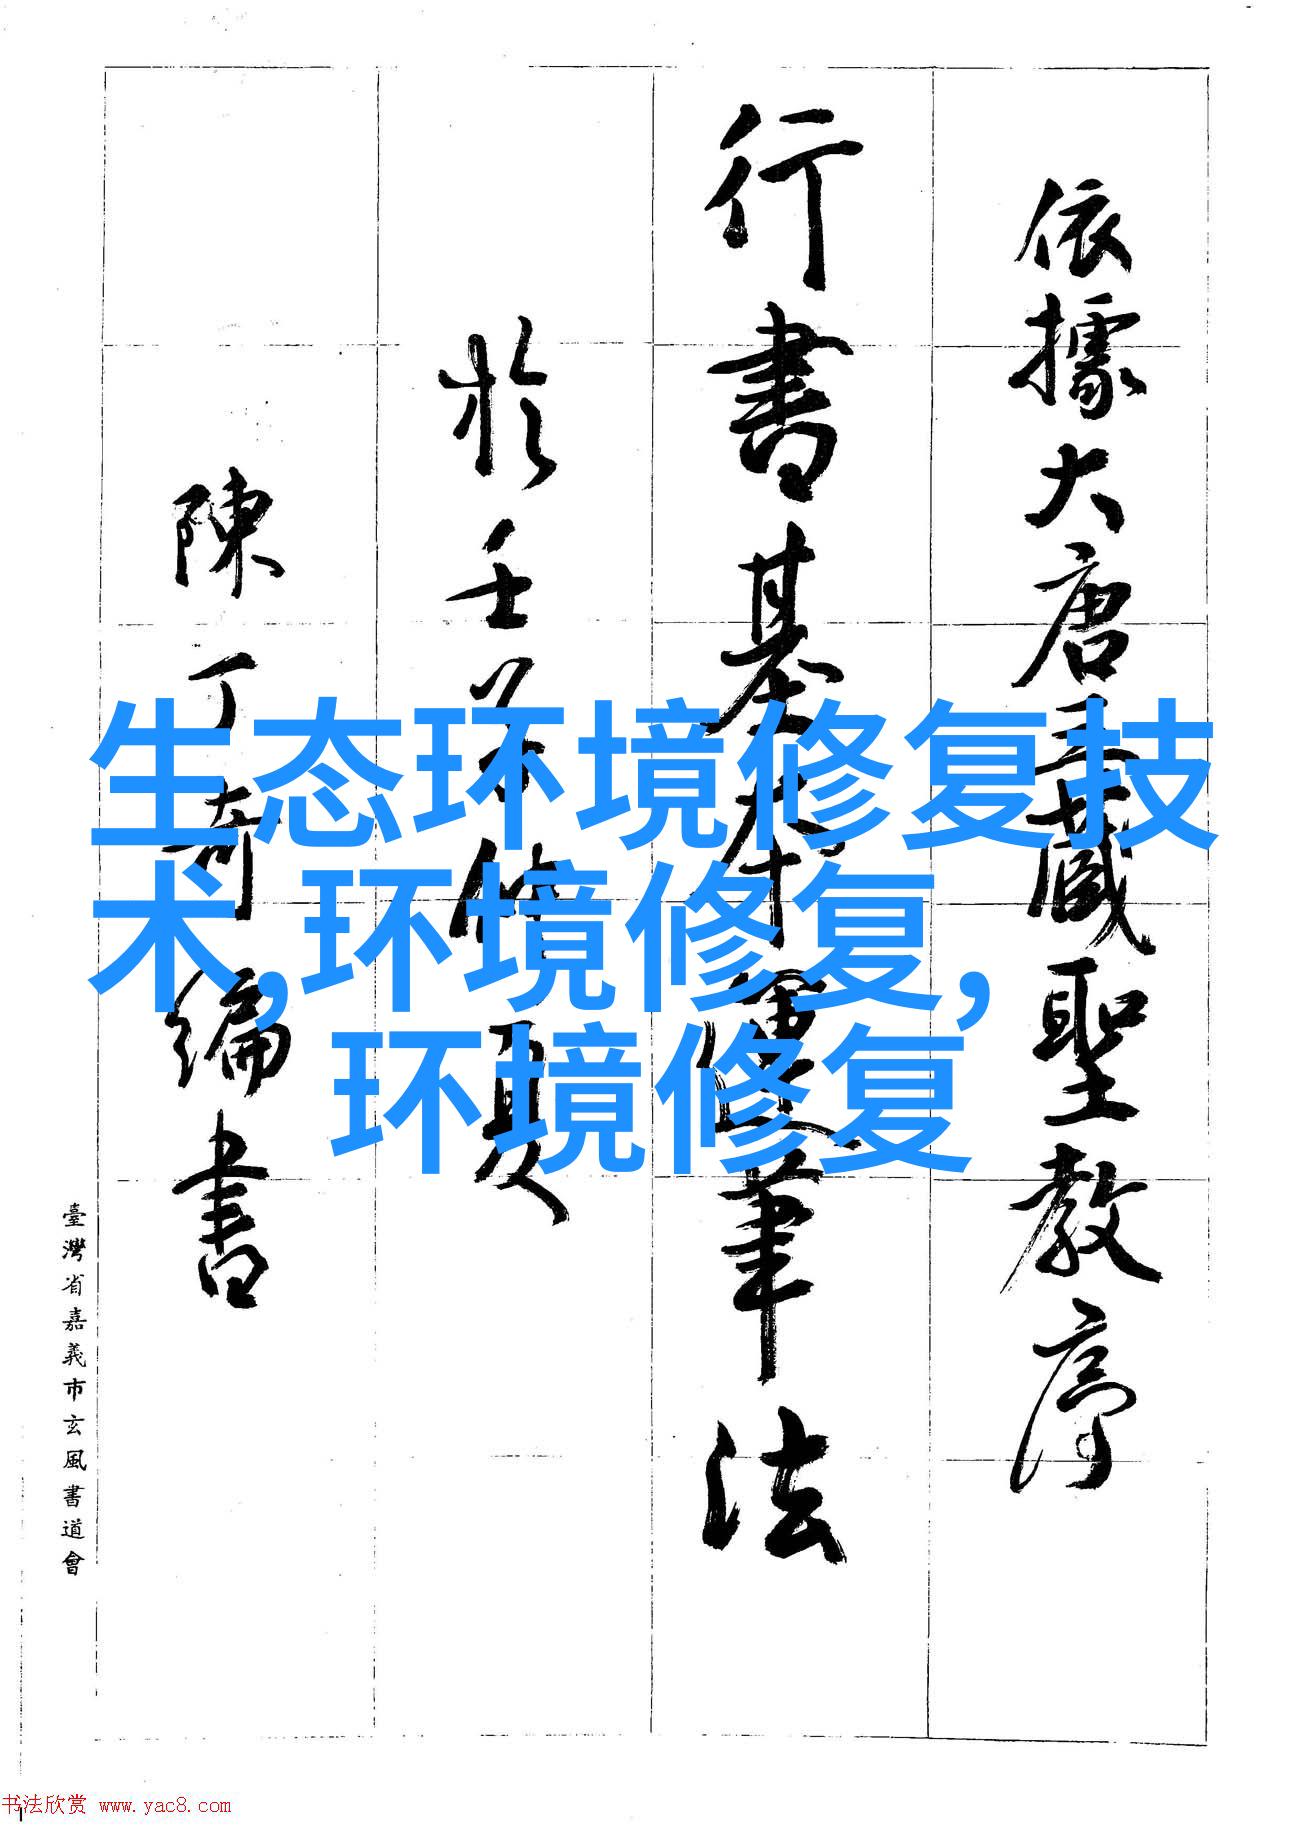 依據大唐三藏聖教序
行書基本運筆法
於壬子仲夏
陳丁奇編書
臺灣省嘉義市玄風書道會
生态环境修复技
术,环境修复,
环境修复
书法欣赏 www.yac8.com
1